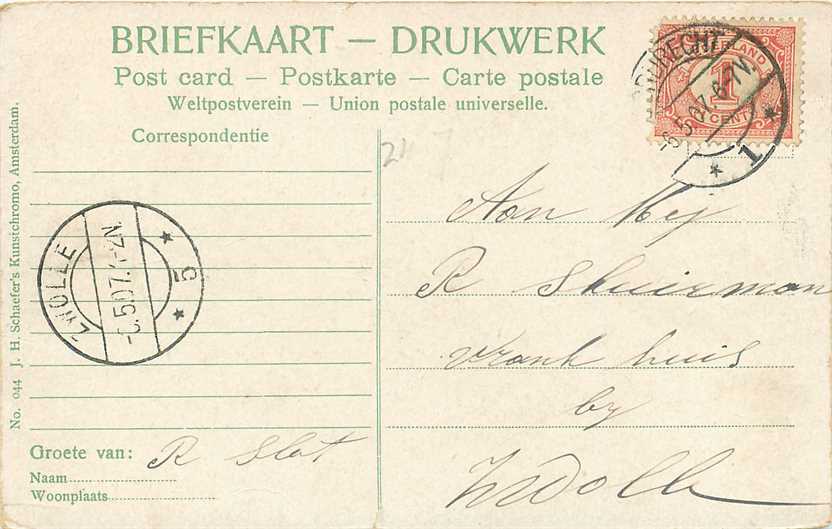 BRIEFKAART — DRUKWERK
Post card — Postkarte — Carte postale
Weltpostverein — Union postale universelle.
Correspondentie
No. 044 J. H. Schaefer's Kunstchromo, Amsterdam.
NEDERLAND
1
CENT
6.5.07.6-7V.
1
ZWOLLE
-6.5.07.1-2N.
5
21
Aan Mej
R Skuirman
Vrank huis
by
Zwolle
Groete van: R Slot
Naam
Woonplaats